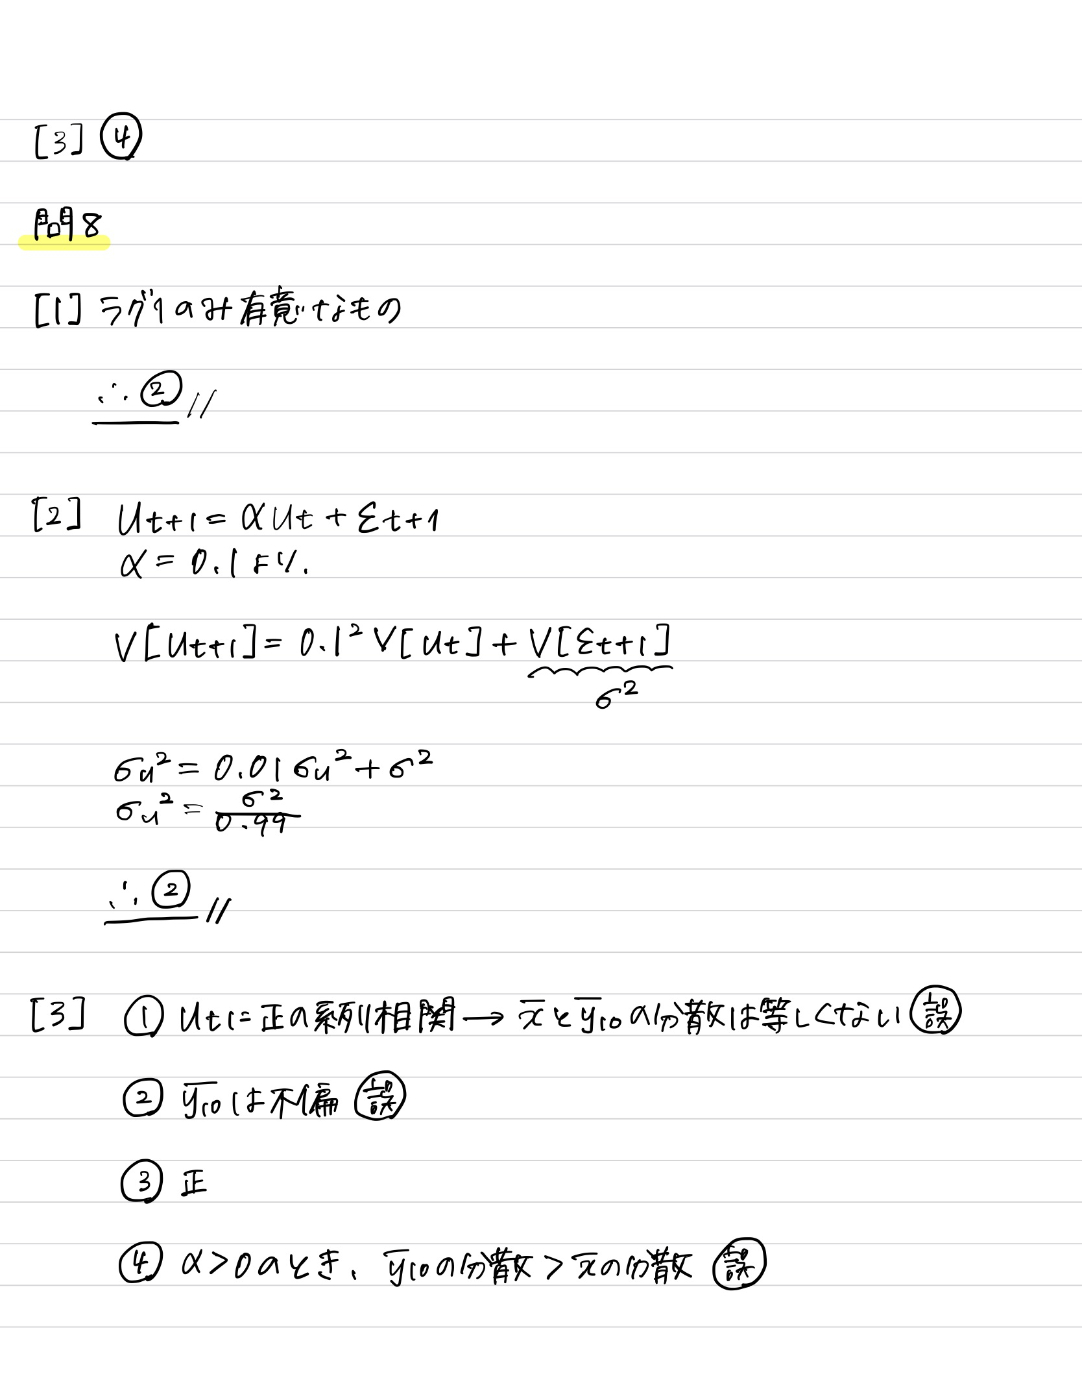 [3] ④
問8
[1] ラグ1のみ有意なもの
∴ ② //
[2] Ut+1 = αUt + εt+1
α = 0.1 より.
V[Ut+1] = 0.1² V[Ut] + V[εt+1]
σ²
σu² = 0.01 σu² + σ²
σu² = σ²/0.99
∴ ② //
[3] ① Utに正の系列相関 → x̄とȳ10の分散は等しくない 誤
② ȳ10は不偏 誤
③ 正
④ α>0のとき、ȳ10の分散 > x̄の分散 誤